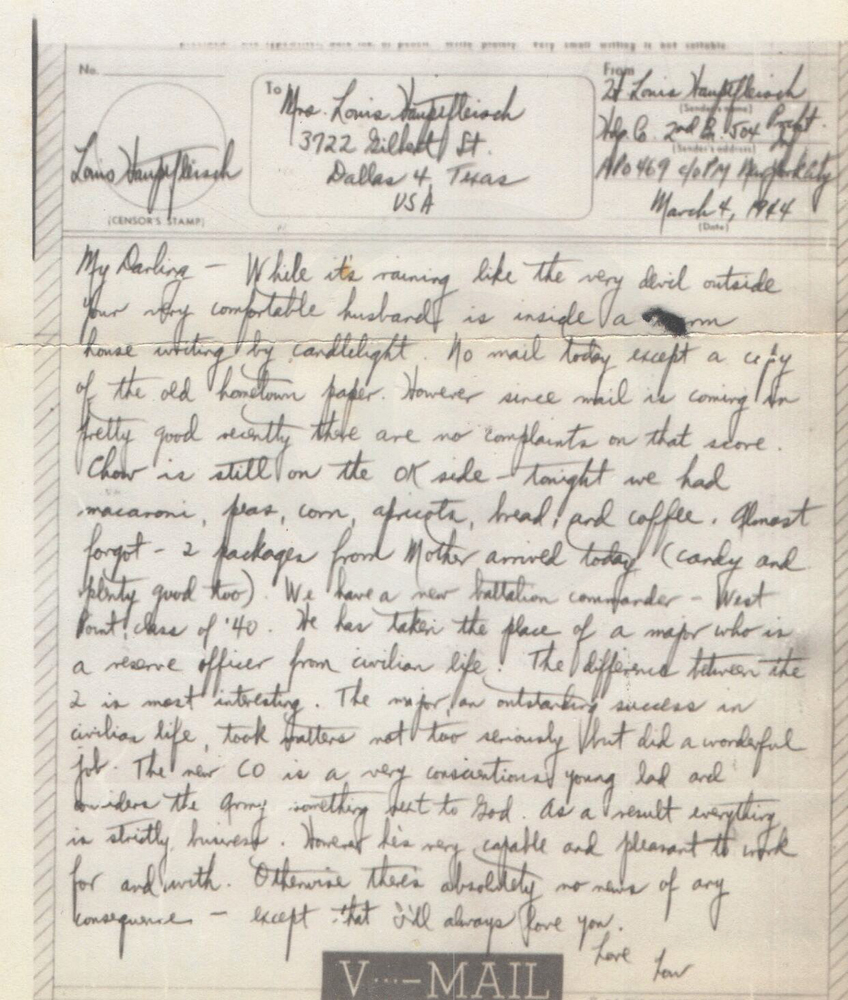 No.
Louis Hauptfleisch
(CENSOR'S STAMP)
To
Mrs. Louis Hauptfleisch
3722 Gilbert St.
Dallas 4, Texas
USA
From
Lt Louis Hauptfleisch
(Sender's name)
Hdq. Co. 2nd Bn. 504 Prcht. Inf
(Sender's address)
APO 469 c/o PM New York City
March 4, 1944
(Date)
My Darling – While it's raining like the very devil outside
your very comfortable husband is inside a
house writing by candlelight. No mail today except a copy
of the old hometown paper. However since mail is coming in
pretty good recently there are no complaints on that score.
Chow is still on the OK side – tonight we had
macaroni, peas, corn, apricots, bread, and coffee. Almost
forgot – 2 packages from Mother arrived today (candy and
plenty good too). We have a new battalion commander – West
Point class of '40. He has taken the place of a major who is
a reserve officer from civilian life. The difference between the
2 is most interesting. The major, an outstanding success in
civilian life, took matters not too seriously but did a wonderful
job. The new CO is a very conscientious young lad and
considers the Army something next to God. As a result everything
is strictly business. However he's very capable and pleasant to work
for and with. Otherwise there's absolutely no news of any
consequence – except that I'll always love you.
Love
Lou
V···—MAIL